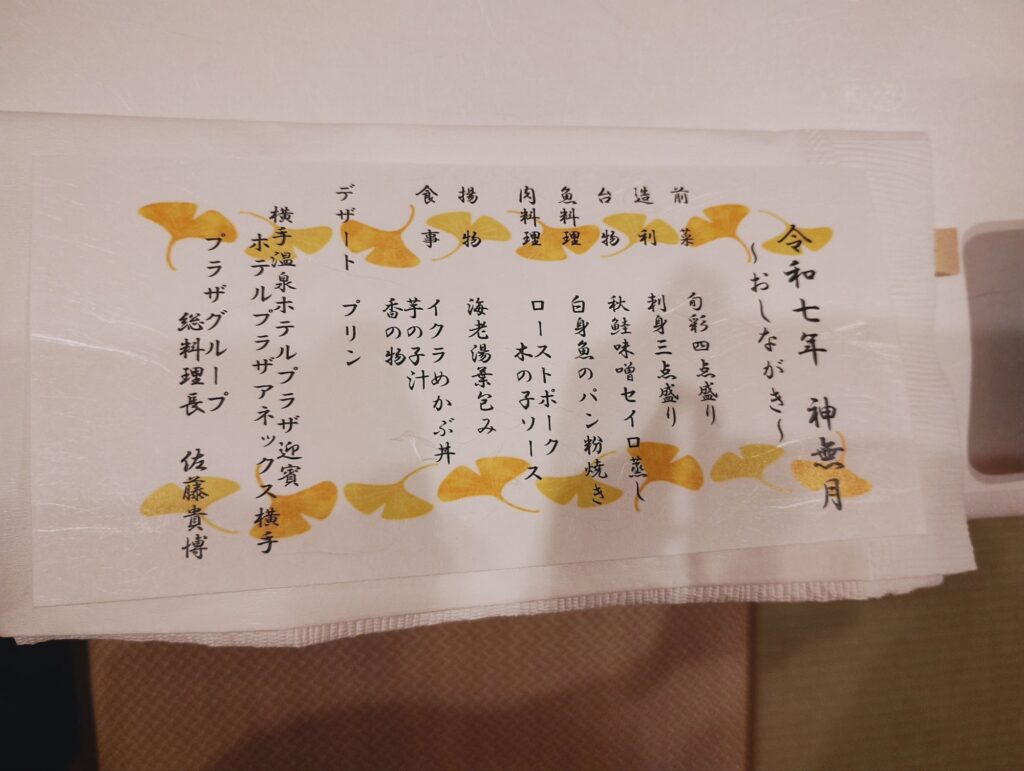 令和七年 神無月
~おしながき~
前菜 旬彩四点盛り
造利 刺身三点盛り
台物 秋鮭味噌セイロ蒸し
魚料理 白身魚のパン粉焼き
肉料理 ローストポーク
木の子ソース
揚物 海老湯葉包み
食事 イクラめかぶ丼
芋の子汁
香の物
デザート プリン
横手温泉ホテルプラザ迎賓
ホテルプラザアネックス横手
プラザグループ
総料理長 佐藤貴博